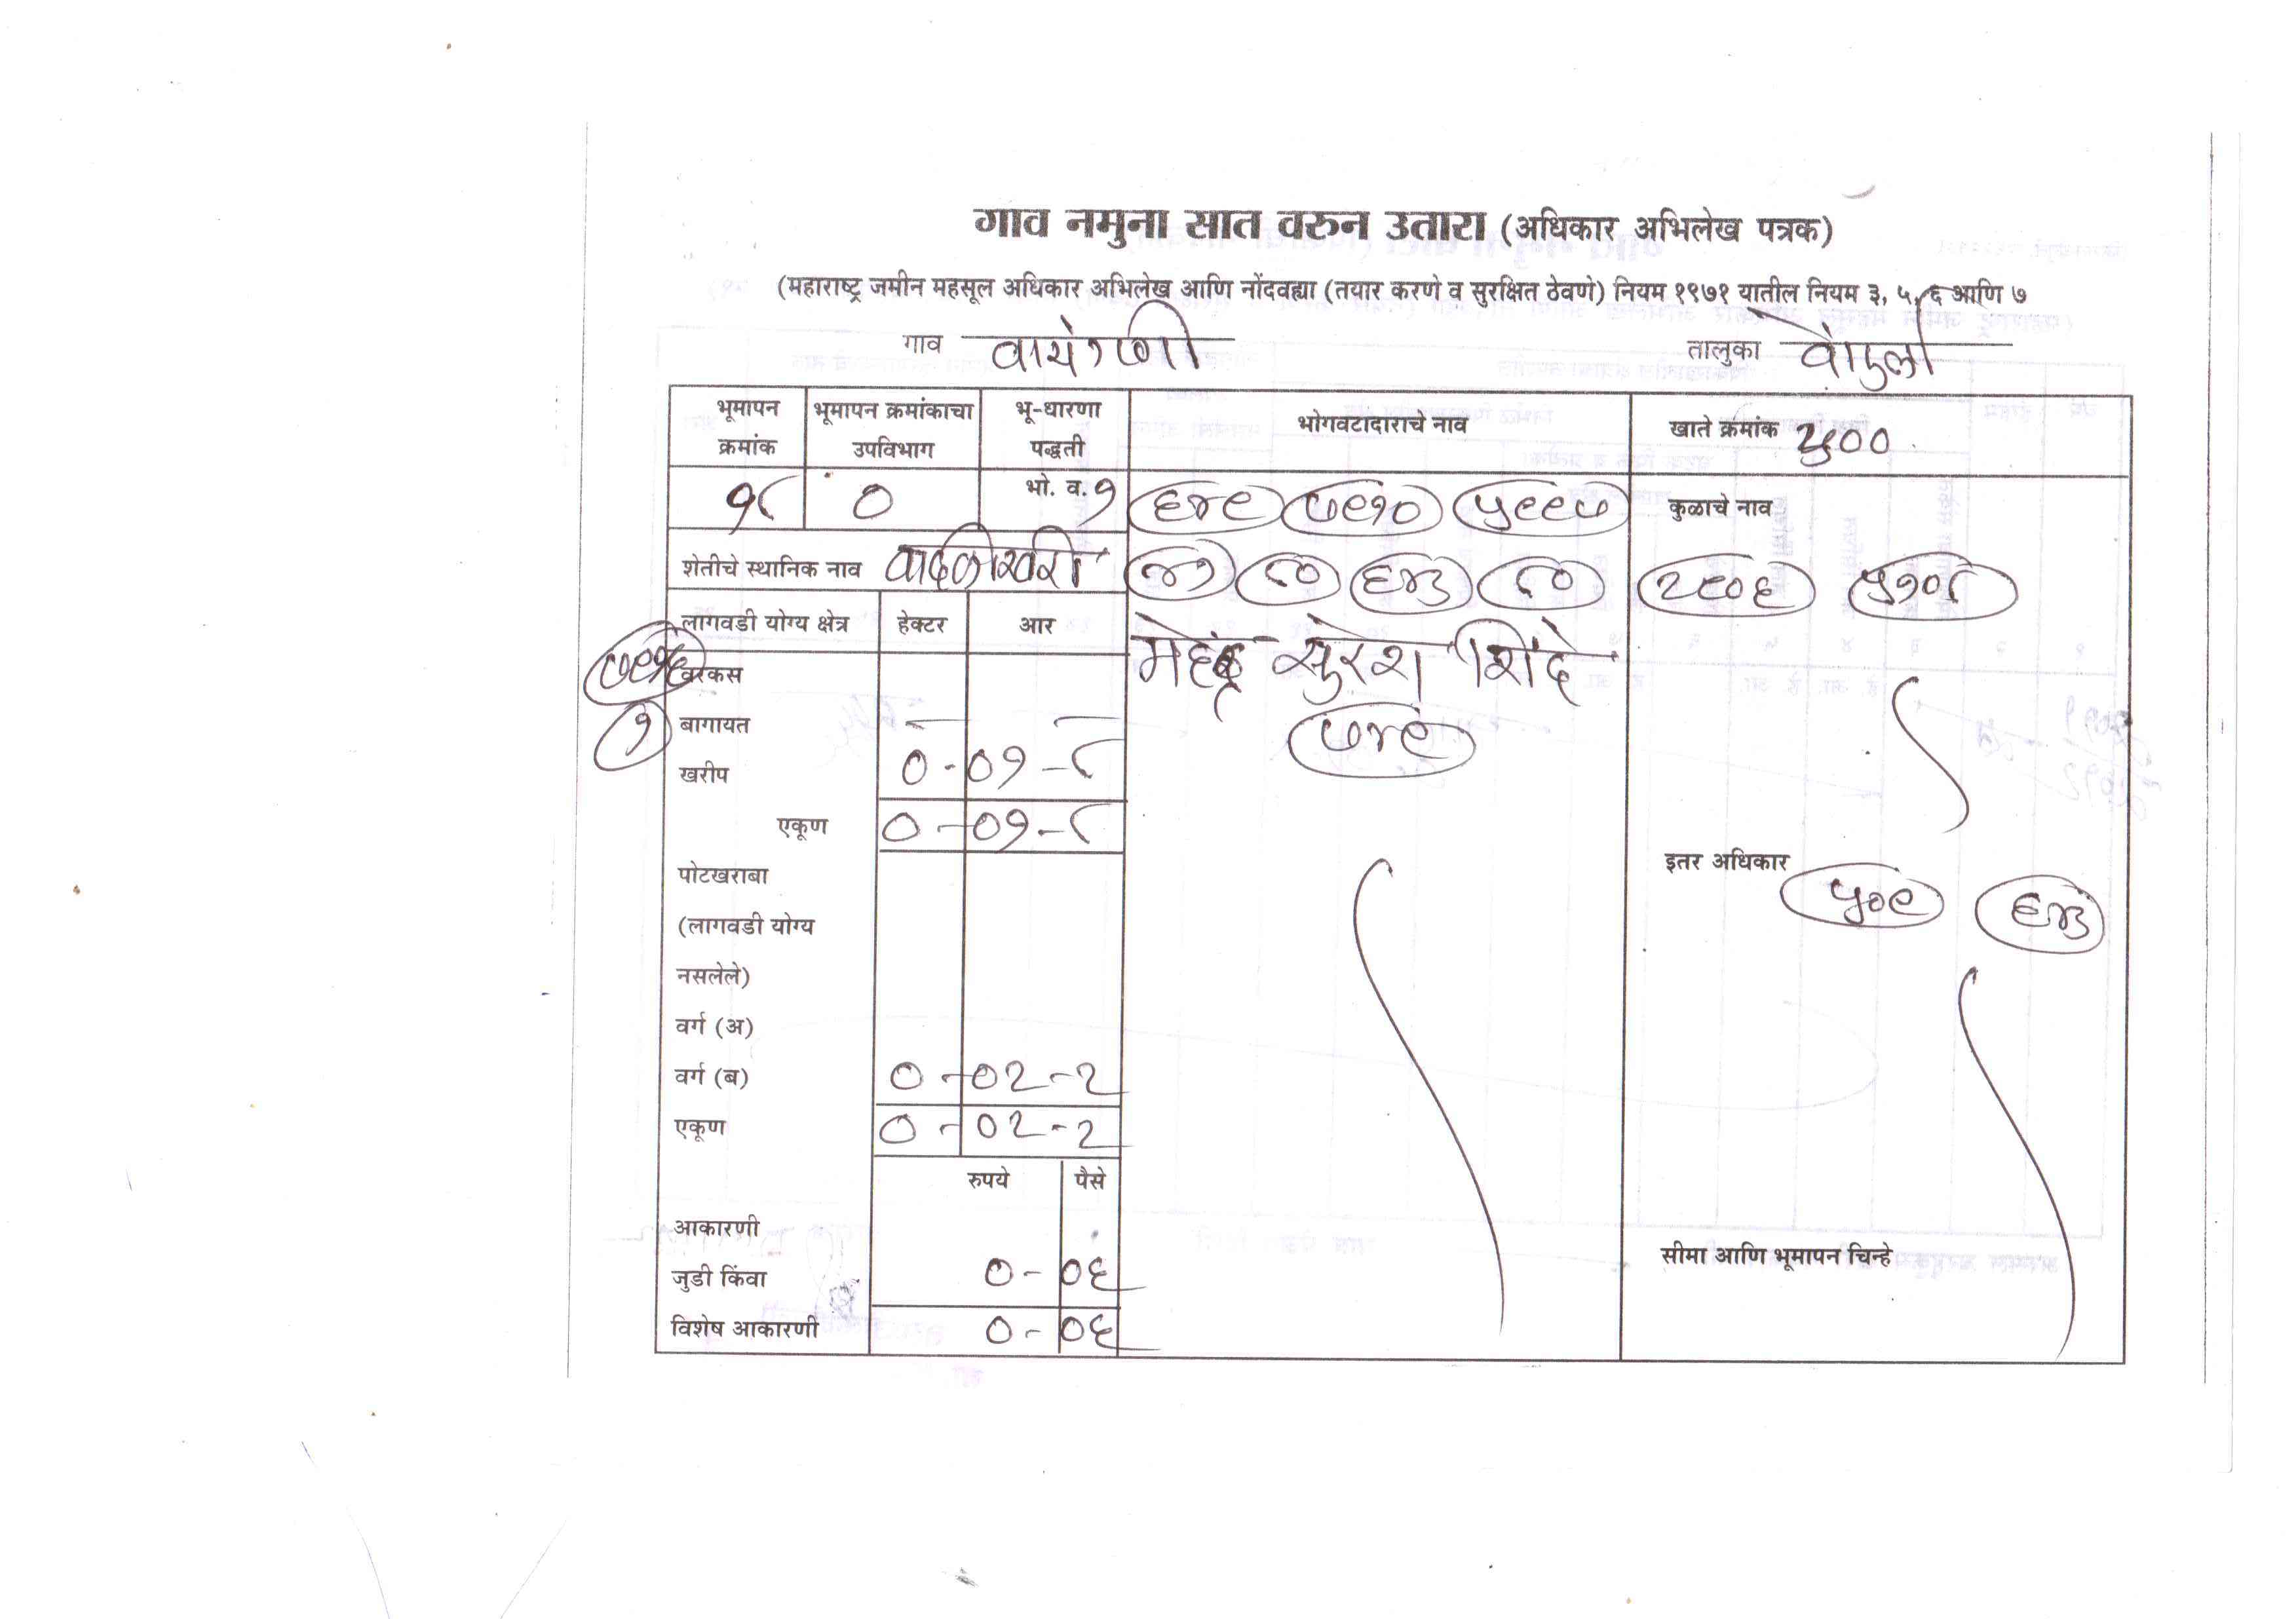 गाव नमुना सात वरुन उतारा (अधिकार अभिलेख पत्रक)
(महाराष्ट्र जमीन महसूल अधिकार अभिलेख आणि नोंदवह्या (तयार करणे व सुरक्षित ठेवणे) नियम १९७१ यातील नियम ३, ५, ६ आणि ७
गाव तालुका
भूमापन क्रमांक भूमापन क्रमांकाचा उपविभाग भू-धारणा पद्धती भोगवटादाराचे नाव खाते क्रमांक
१८ ० भो. व. १ ६४९ ७९१० ५९९७ कुळाचे नाव
शेतीचे स्थानिक नाव ४१ ८० ६४३ ८० २८०६ ५१०८
लागवडी योग्य क्षेत्र हेक्टर आर
महेंद्र सुरेश शिंदे
वरकस
१ बागायत ७४९
खरीप ० - ०१ - ८
एकूण ० - ०१ - ८
इतर अधिकार ५०९ ६४३
पोटखराबा
(लागवडी योग्य
नसलेले)
वर्ग (अ)
वर्ग (ब) ० - ०२ - २
एकूण ० - ०२ - २
रुपये पैसे
आकारणी
सीमा आणि भूमापन चिन्हे
जुडी किंवा ० - ०६
विशेष आकारणी ० - ०६